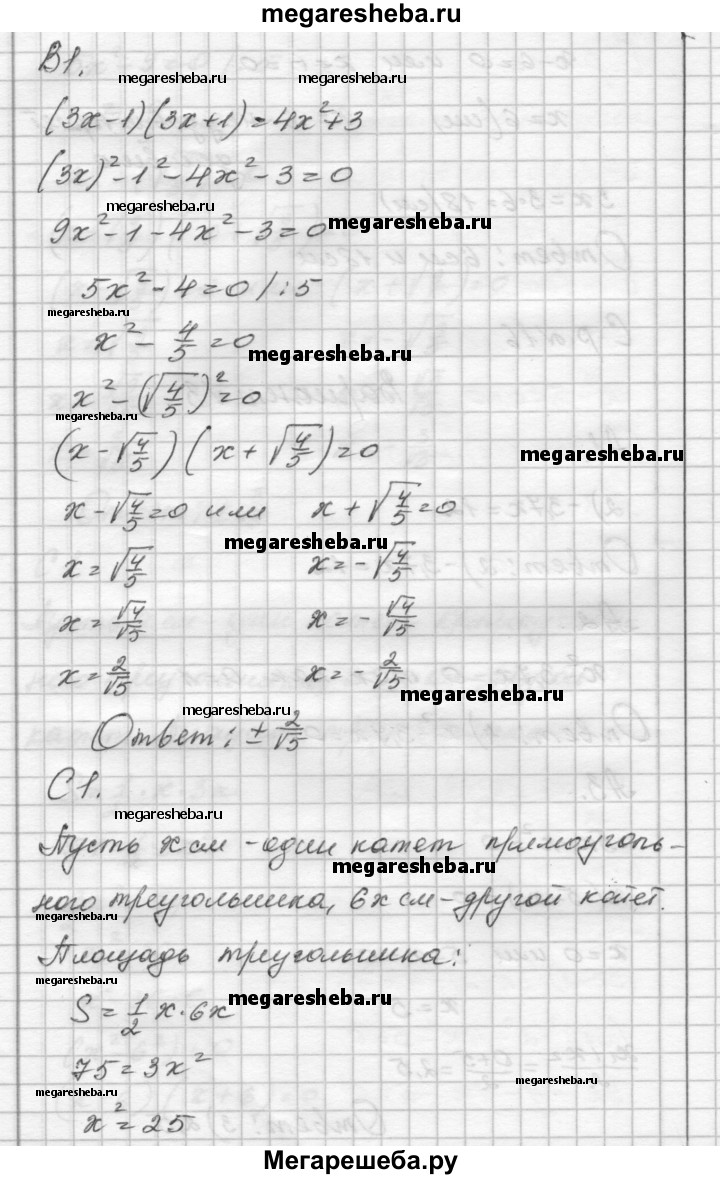 megaresheba.ru
B1.
megaresheba.ru megaresheba.ru
(3x-1)(3x+1)=4x²+3
(3x)²-1²-4x²-3=0
megaresheba.ru
9x²-1-4x²-3=0
megaresheba.ru
5x²-4=0 /:5
megaresheba.ru
x²-4/5=0
megaresheba.ru
x²-(√4/5)²=0
megaresheba.ru
(x-√4/5)(x+√4/5)=0
megaresheba.ru
x-√4/5=0 или x+√4/5=0
megaresheba.ru
x=√4/5 x=-√4/5
x=√4/√5 x=-√4/√5
x=2/√5 x=-2/√5
megaresheba.ru
megaresheba.ru
Ответ: ±2/√5
C1.
megaresheba.ru
Пусть x см - один катет прямоуголь-
megaresheba.ru
ного треугольника, 6x см - другой катет.
megaresheba.ru
Площадь треугольника:
megaresheba.ru
S=1/2 x·6x
megaresheba.ru
75=3x²
megaresheba.ru
megaresheba.ru
x²=25
Мегарешеба.ру